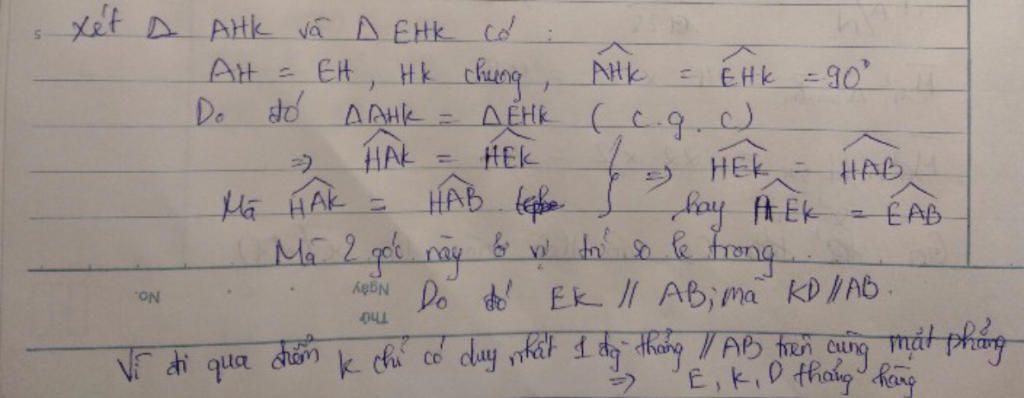 Xét Δ AHK và Δ EHK có :
AH = EH , HK chung , \widehat{AHK} = \widehat{EHK} = 90°
Do đó ΔAHK = ΔEHK ( c . g . c )
=> \widehat{HAK} = \widehat{HEK} } => \widehat{HEK} = \widehat{HAB}
Mà \widehat{HAK} = \widehat{HAB} hay \widehat{AEK} = \widehat{EAB}
Mà 2 góc này ở vị trí so le trong
No. Ngày Do đó EK // AB; mà KD // AB.
Thứ
Vì đi qua điểm K chỉ có duy nhất 1 đg thẳng // AB trên cùng mặt phẳng
=> E, K, D thẳng hàng